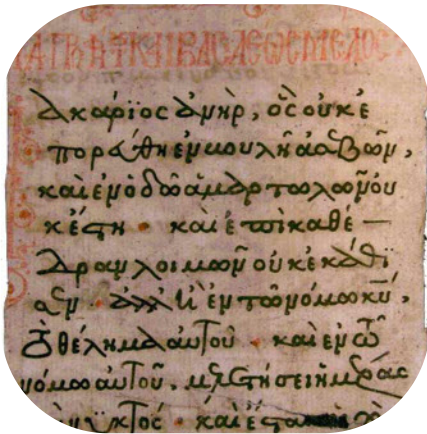 ΚΑΙ ΒΑΣΙΛΕΩΣ ΜΕΛΟΣ
ακάριος ἀνὴρ, ὃς οὐκ ἐ
πορεύθη ἐν βουλῆ ἀσεβῶν,
καὶ ἐν ὁδῶ ἁμαρτωλῶν οὐ
κ ἔστη · καὶ ἐπὶ καθέ—
δραν λοιμῶν οὐκ ἐκάθι
σεν · ἀλλ' ἢ ἐν τῶ νόμω κυ,
τὸ θέλημα αὐτοῦ · καὶ ἐν τῶ
νόμω αὐτοῦ, μελετήσει ἡμέρας
νυκτός · καὶ ἔσται